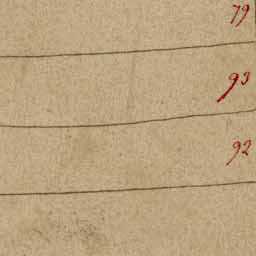 79
93
92